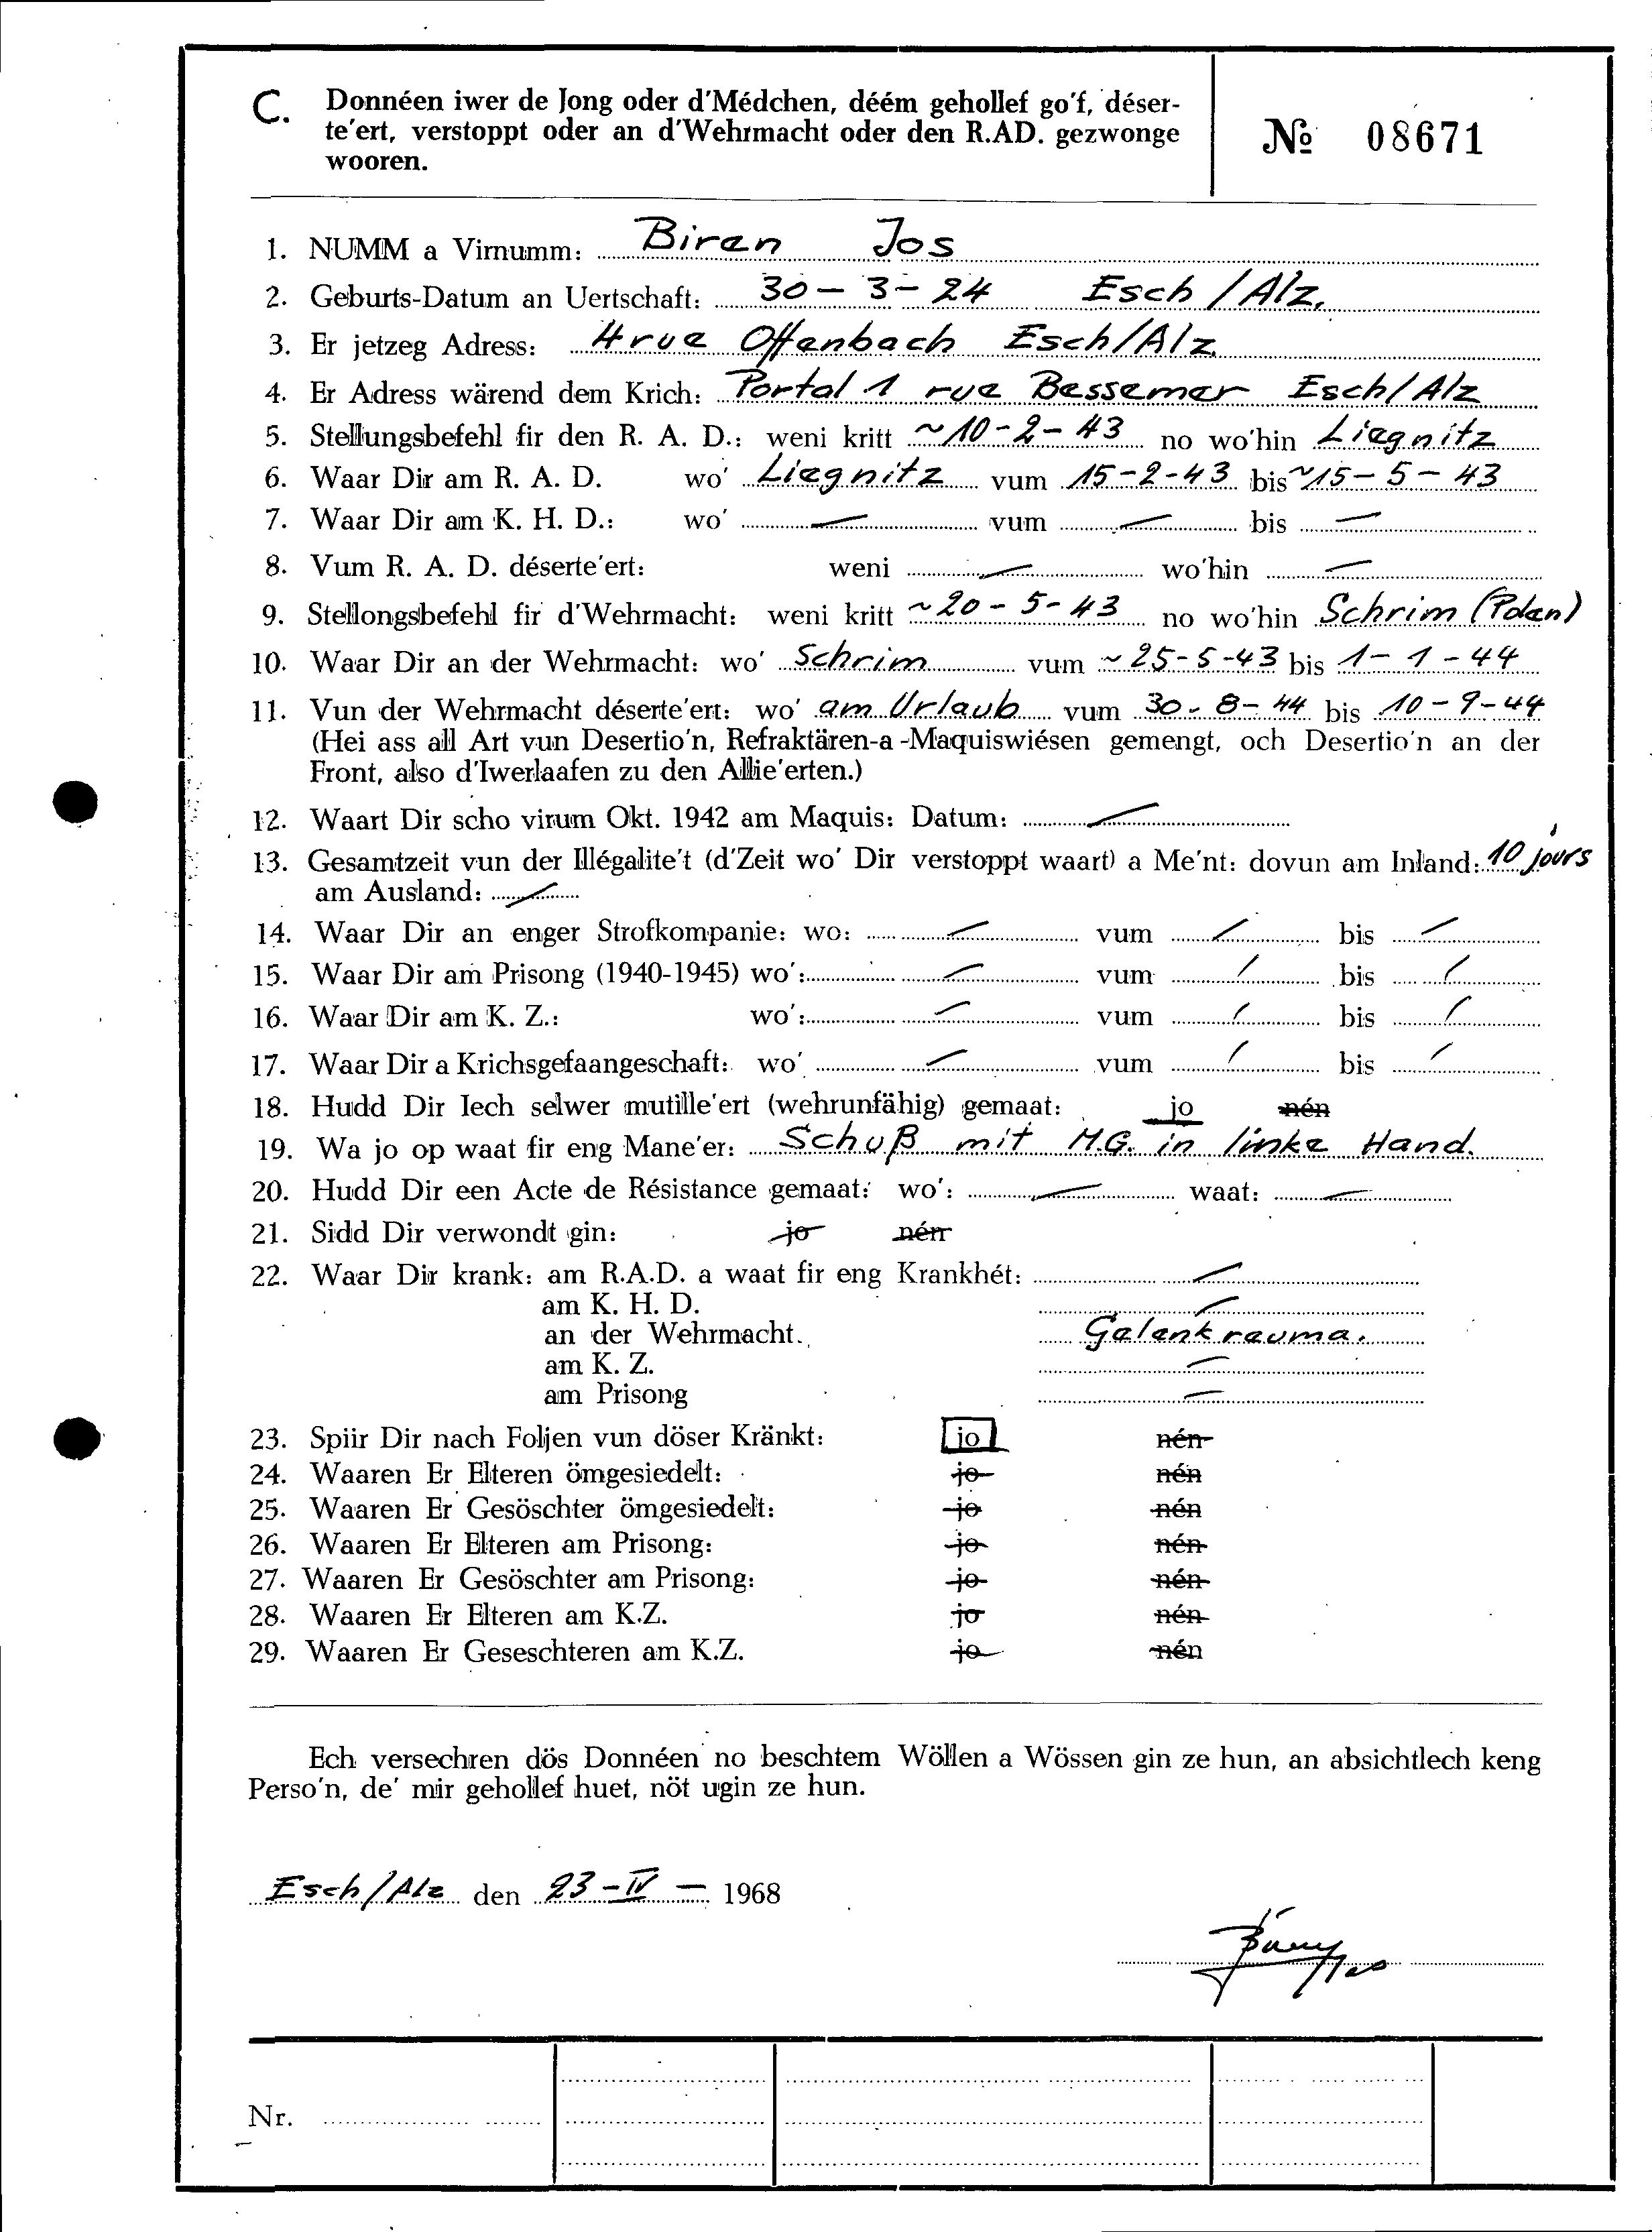 C. Donnéen iwer de Jong oder d'Médchen, déém gehollef go'f, déser-
te'ert, verstoppt oder an d'Wehrmacht oder den R.AD. gezwonge
wooren.
№ 08671
1. NUMM a Virnumm: Biren Jos
2. Geburts-Datum an Uertschaft: 30 - 3 - 24 Esch / Alz.
3. Er jetzeg Adress: 4 rue Offenbach Esch/Alz
4. Er Adress wärend dem Krich: Portal 1 rue Bessemer Esch/Alz
5. Stellungsbefehl fir den R. A. D.: weni kritt ~10-2-43 no wo'hin Liegnitz
6. Waar Dir am R. A. D. wo' Liegnitz vum 15-2-43 bis ~15-5-43
7. Waar Dir am K. H. D.: wo' — vum — bis —
8. Vum R. A. D. déserte'ert: weni — wo'hin —
9. Stellongsbefehl fir d'Wehrmacht: weni kritt ~20-5-43 no wo'hin Schrim (Polen)
10. Waar Dir an der Wehrmacht: wo' Schrim vum ~25-5-43 bis 1-1-44
11. Vun der Wehrmacht déserte'ert: wo' am Urlaub vum 30-8-44 bis 10-9-44
(Hei ass all Art vun Desertio'n, Refraktären-a-Maquiswiésen gemengt, och Desertio'n an der
Front, also d'Iwerlaafen zu den Allie'erten.)
12. Waart Dir scho virum Okt. 1942 am Maquis: Datum: —
13. Gesamtzeit vun der Illégalite't (d'Zeit wo' Dir verstoppt waart) a Me'nt: dovun am Inland: 10 jours
am Ausland: —
14. Waar Dir an enger Strofkompanie: wo: — vum — bis —
15. Waar Dir am Prisong (1940-1945) wo': — vum — bis —
16. Waar Dir am K. Z.: wo': — vum — bis —
17. Waar Dir a Krichsgefaangeschaft: wo' — vum — bis —
18. Hudd Dir Iech selwer mutille'ert (wehrunfähig) gemaat: jo nén
19. Wa jo op waat fir eng Mane'er: Schuß mit M.G. in linke Hand.
20. Hudd Dir een Acte de Résistance gemaat: wo': — waat: —
21. Sidd Dir verwondt gin: jo nén
22. Waar Dir krank: am R.A.D. a waat fir eng Krankhét: —
am K. H. D. —
an der Wehrmacht. Gelenkreuma.
am K. Z. —
am Prisong —
23. Spiir Dir nach Foljen vun döser Kränkt: jo nén
24. Waaren Er Elteren ömgesiedelt: jo nén
25. Waaren Er Gesöschter ömgesiedelt: jo nén
26. Waaren Er Elteren am Prisong: jo nén
27. Waaren Er Gesöschter am Prisong: jo nén
28. Waaren Er Elteren am K.Z. jo nén
29. Waaren Er Geseschteren am K.Z. jo nén
Ech versechren dös Donnéen no beschtem Wöllen a Wössen gin ze hun, an absichtlech keng
Perso'n, de' mir gehollef huet, nöt ugin ze hun.
Esch/Alz den 23-IV- 1968
Nr.